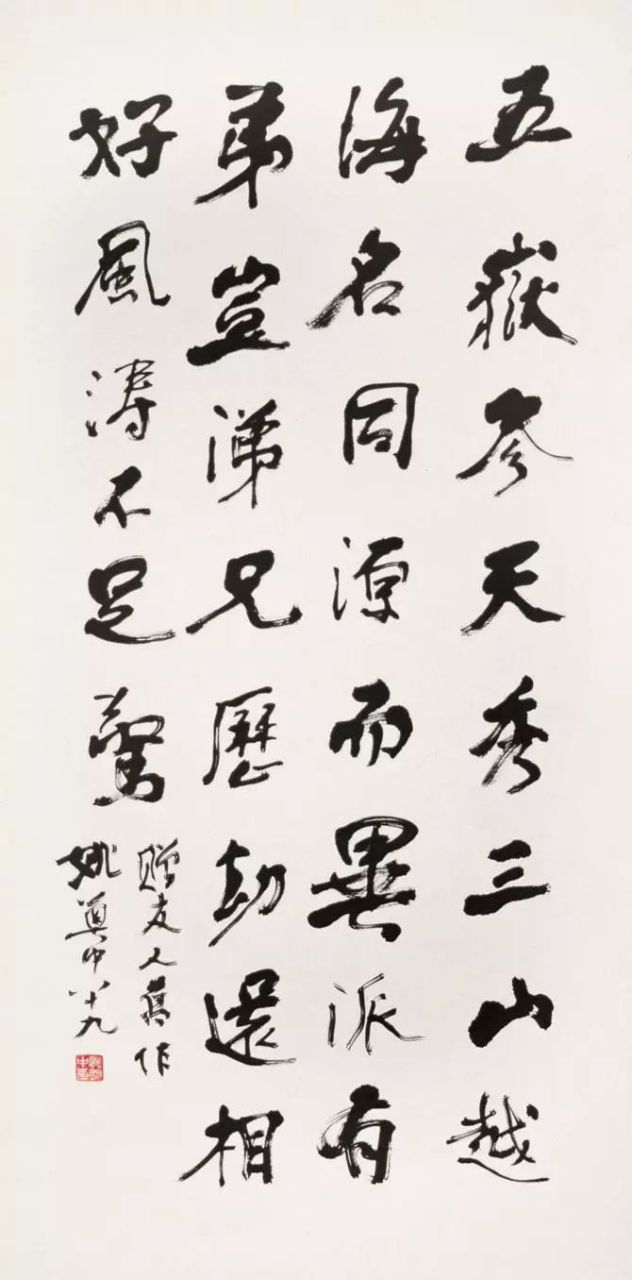 五嶽参天秀三山越
海名同源而異派有
弟豈涕兄歷劫還相
好風濤不足驚
贈友人舊作
姚奠中八十九